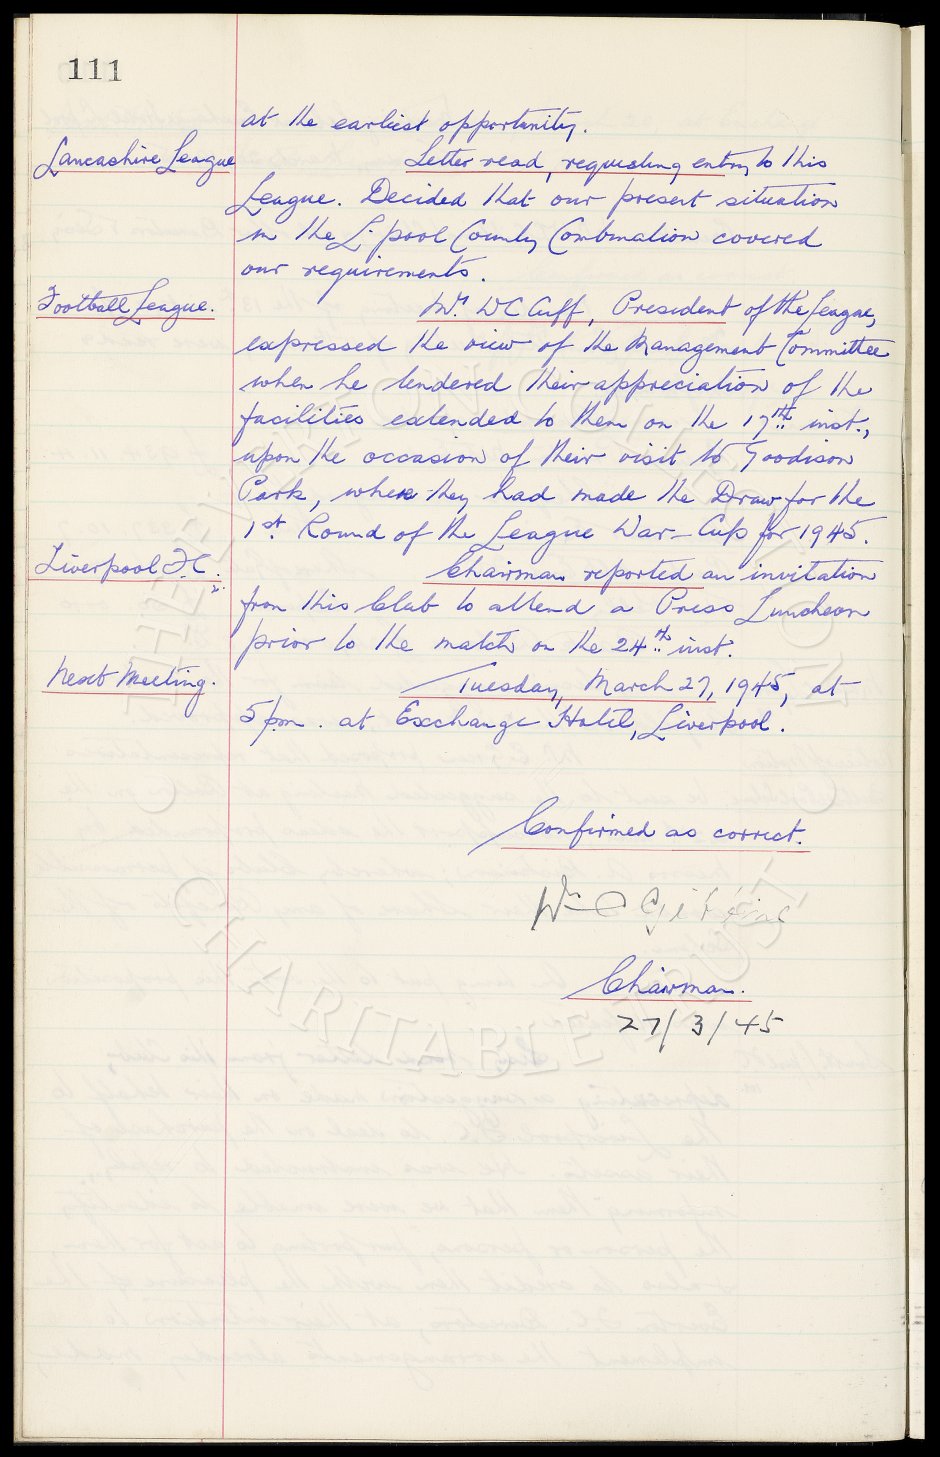 111
at the earliest opportunity.
Lancashire League
Letter read, requesting entry to this
League. Decided that our present situation
in the L'pool County Combination covered
our requirements.
Football League.
Mr. W C Cuff, President of the League,
expressed the view of the Management Committee
when he tendered their appreciation of the
facilities extended to them on the 17th inst.,
upon the occasion of their visit to Goodison
Park, where they had made the Draw for the
1st. Round of the League War-Cup for 1945.
Liverpool F.C.
Chairman reported an invitation
from this Club to attend a Press Luncheon
prior to the match on the 24th inst.
Next Meeting.
Tuesday, March 27, 1945, at
5 p.m. at Exchange Hotel, Liverpool.
Confirmed as correct.
Wm
Chairman.
27/3/45
THE EVERTON COLLECTION
CHARITABLE TRUST